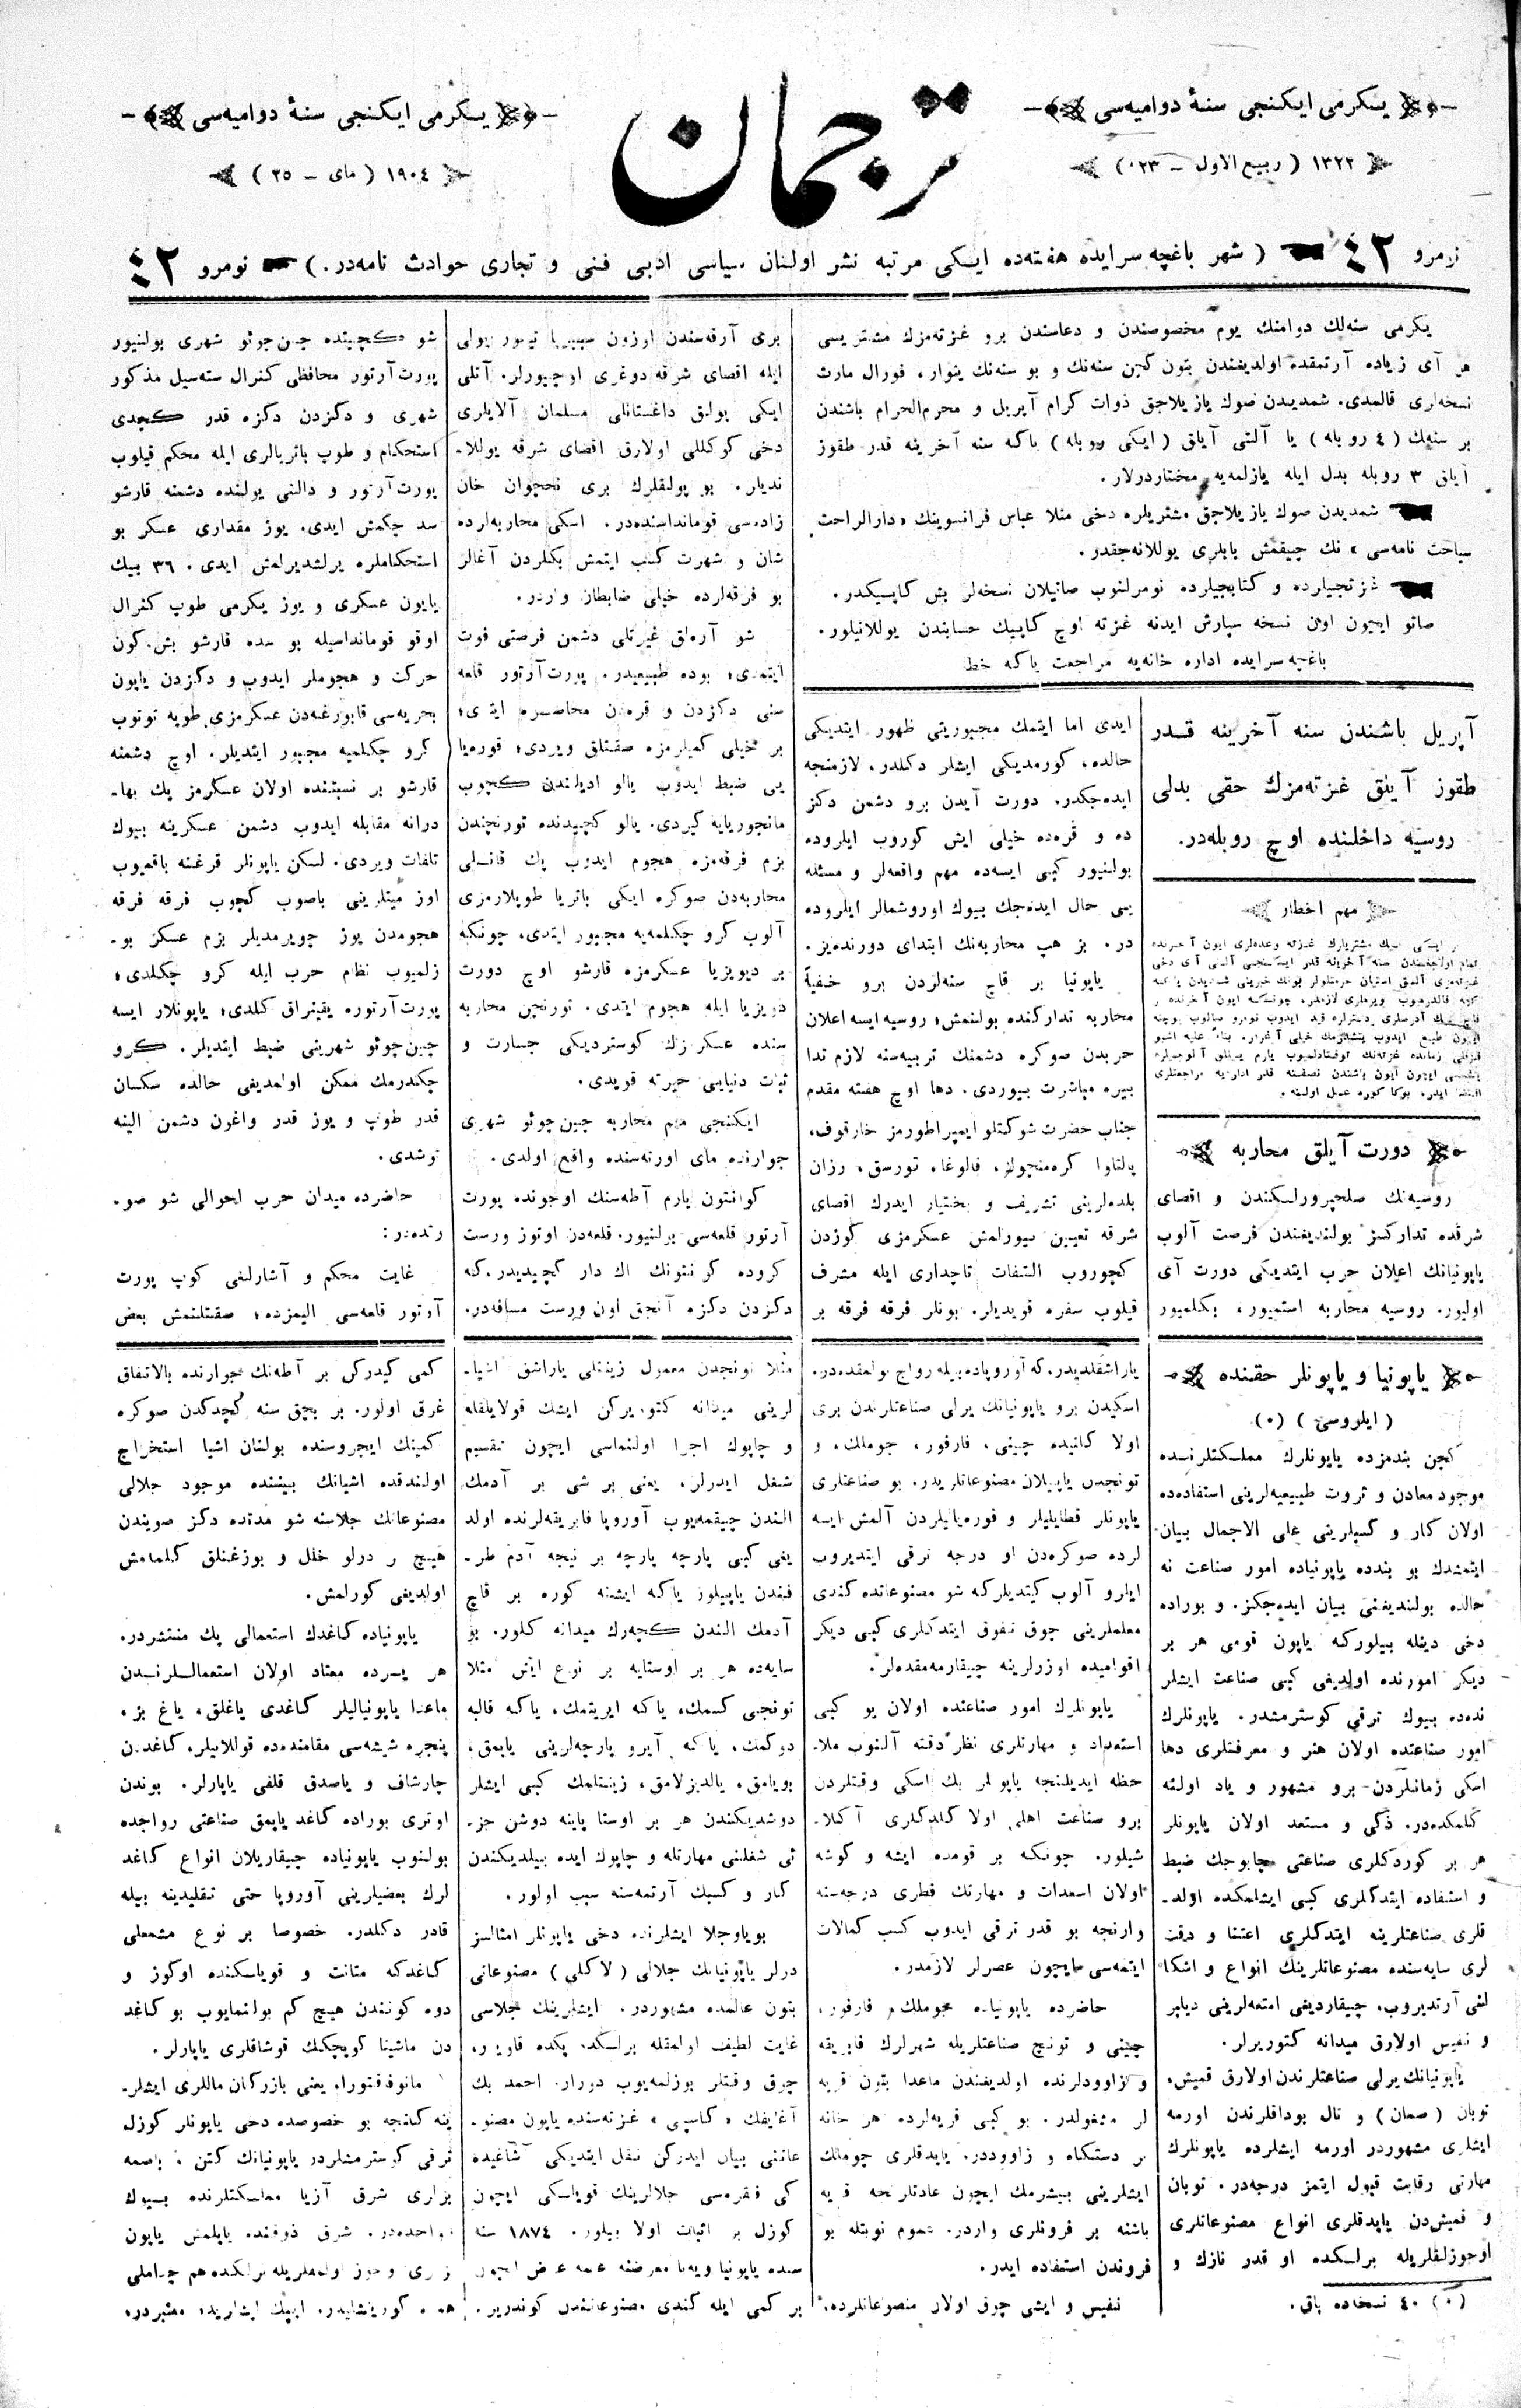 یكرمی ایكنجی سنۀ دوامیه‌سی
١٣٢٢ ( ربیع الاول ـ ٢٣ )
ترجمان
یكرمی ایكنجی سنۀ دوامیه‌سی
١٩٠٤ ( مای ـ ٢٥ )
نومرو ٤٢ ( شهر باغچه‌سرایده هفته‌ده ایكی مرتبه نشر اولنان سیاسی ادبی فنی و تجاری حوادث نامه‌در. ) نومرو ٤٢
یكرمی سنه‌لك دوامنك یوم مخصوصندن و دعاسندن برو غزته‌مزك مشتریسی
هر آی زیاده آرتمقده اولدیغندن بتون كچن سنه‌نك و بو سنه‌نك ینوار، فورال مارت
نسخه‌لری قالمدی. شمدیدن صوك یازیلاجق ذوات كرام آپریل و محرم‌الحرام باشندن
بر سنه‌لك ( ٤ روبله ) یا آلتی آیلق ( ایكی روبله ) یاكه سنه آخرینه قدر طقوز
آیلق ٣ روبله بدل ایله یازلمه‌یه مختاردرلار.
شمدیدن صوك یازیلاجق مشتریلره دخی منلا عباس فرانسوینك «دارالراحت
سیاحت نامه‌سی» نك چیقمش بابلری یوللانه‌جقدر.
غزتجیلرده و كتابجیلرده نومرلنوب صاتیلان نسخه‌لر بش كاپیكدر.
صاتو ایچون اون نسخه سپارش ایدنه غزته اوچ كاپیك حسابندن یوللانیلور.
باغچه‌سرایده اداره خانه‌یه مراجعت یاكه خط
آپریل باشندن سنه آخرینه قدر
طقوز آیلق غزته‌مزك حقی بدلی
روسیه داخلنده اوچ روبله‌در.
مهم اخطار
دورت آیلق محاربه
روسیه‌نك صلحپرورلـكندن و اقصای
شرقده تداركسز بولندیغندن فرصت آلوب
یاپونیانك اعلان حرب ایتدیكی دورت آی
اولیور. روسیه محاربه استمیور، بكلمیور
ایدی اما ایتمك مجبوریتی ظهور ایتدیكی
حالده، كورمدیكی ایشلر دكلدر، لازمنجه
ایده‌جكدر. دورت آیدن برو دشمن دكز
ده و قره‌ده خیلی ایش كوروب ایلروده
بولنیور كبی ایسه‌ده مهم واقعه‌لر و مسئله
یی حال ایده‌جك بیوك اوروشمالر ایلروده
در. بز هپ محاربه‌نك ابتدای دورنده‌یز.
یاپونیا بر قاچ سنه‌لردن برو خفیةً
محاربه تداركنده بولنمش؛ روسیه ایسه اعلان
حربدن صوكره دشمنك تربیه‌سنه لازم تدا
بیره مباشرت بیوردی. دها اوچ هفته مقدم
جناب حضرت شوكتلو ایمپراطورمز خارقوف،
پالتاوا كره‌منچولغ، قالوغا، تورسق، رزان
بلده‌لرینی تشریف و بختیار ایدرك اقصای
شرقه تعیین بیورلمش عسكرمزی كوزدن
كچوروب التفات تاجداری ایله مشرف
قیلوب سفره قویدیلر. بونلر فرقه فرقه بر
بری آرقه‌سندن اوزون سیبیریا تیمور یولی
ایله اقصای شرقه دوغری اوچیورلر. آتلی
ایكی پولق داغستانلی مسلمان آلایلری
دخی كوكللی اولارق اقصای شرقه یوللا-
ندیلر. بو پولقلرك بری نخچوان خان
زاده‌سی قوماندانسنده‌در. اسكی محاربه‌لرده
شان و شهرت كسب ایتمش بكلردن آغالر
بو فرقه‌لرده خیلی ضابطان واردر.
شو آره‌لق غیرتلی دشمن فرصتی فوت
ایتمدی؛ بوده طبیعیدر. پورت‌آرتور قلعه
سنی دكزدن و قره‌دن محاصره ایتدی؛
بر خیلی كمیلرمزه صقتلق ویردی؛ قوره‌یا
یی ضبط ایدوب یالو ادیلندن كچوب
مانجوریایه كیردی. یالو كچیدنده تورنچندن
بزم فرقه‌مزه هجوم ایدوب پك قانلی
محاربه‌دن صوكره ایكی باتریا طوپلارمزی
آلوب كرو چكلمه‌یه مجبور ایتدی، چونكه
بر دیویزیا عسكرمزه قارشو اوچ دورت
دویزیا ایله هجوم ایتدی. تورنچن محاربه
سنده عسكرمزك كوستردیكی جسارت و
ثبات دنیایی حیرته قویدی.
ایكنجی مهم محاربه چین‌چوئو شهری
جوارنده مای اورته‌سنده واقع اولدی.
كوانتون یارم آطه‌سنك اوجونده پورت
آرتور قلعه‌سی بولنیور. قلعه‌دن اوتوز ورست
كروده كوانتونك اك دار كچیدیدر كه
دكزدن دكزه آنجق اون ورست مسافه‌در.
شو كچیتده چین‌چوئو شهری بولنیور
پورت‌آرتور محافظی كنرال سته‌سیل مذكور
شهری و دكزدن دكزه قدر كچدی
استحكام و طوپ باتریالری ایله محكم قیلوب
پورت‌آرتور و دالنی یولنده دشمنه قارشو
سد چكمش ایدی. یوز مقداری عسكر بو
استحكاملره یرلشدیرلمش ایدی. ٣٦ بیك
یاپون عسكری و یوز یكرمی طوپ كنرال
اوقو قوماندا‌سیله بو سده قارشو بش كون
حركت و هجوملر ایدوب و دكزدن یاپون
بحریه‌سی قابورغه‌دن عسكرمزی طوپه توتوب
كرو چكلمیه مجبور ایتدیلر. اوچ دشمنه
قارشو بر نسبتنده اولان عسكرمز پك بها-
درانه مقابله ایدوب دشمن عسكرینه بیوك
تلفات ویردی. لـكن یاپونلر قرغنه باقمیوب
اوز میتلرینی باصوب كچوب فرقه فرقه
هجومدن یوز چویرمدیلر بزم عسكر بو-
زلمیوب نظام حرب ایله كرو چكلدی؛
پورت‌آرتوره یقینراق كلدی؛ یاپونلار ایسه
چین‌چوئو شهرینی ضبط ایتدیلر. كرو
چكدرمك ممكن اولمدیغی حالده سكسان
قدر طوپ و یوز قدر واغون دشمن الینه
توشدی.
حاضرده میدان حرب احوالی شو صو-
رتده‌در:
غایت محكم و آشارلغی كوپ پورت
آرتور قلعه‌سی الیمزده؛ صقتلنمش بعض
یاپونیا و یاپونلر حقنده
( ایلروسی ) (٠)
كچن بندمزده یاپونلرك مملـكتلرنـده
موجود معادن و ثروت طبیعیه‌لرینی استفاده‌ده
اولان كار و كسپلرینی علی الاجمال بیان
ایتمشدك بو بندده یاپونیاده امور صناعت نه
حالده بولندیغنی بیان ایده‌جكز. و بوراده
دخی دینله بیلوركه یاپون قومی هر بر
دیكر امورنده اولدیغی كبی صناعت ایشلر
نده‌ده بیوك ترقی كوسترمشدر. یاپونلرك
امور صناعتده اولان هنر و معرفتلری دها
اسكی زمانلردن برو مشهور و یاد اولنه
كلمكده‌در. ذكی و مستعد اولان یاپونلر
هر بر كوردكلری صناعتی چابوجك ضبط
و استفاده ایتدكلری كبی ایشلمكده اولد-
قلری صناعتلرینه ایتدكلری اعتنا و دقت
لری سایه‌سنده مصنوعاتلرینك انواع و اشكا
لنی آرتدیروب، چیقاردیغی امتعه‌لرینی دیاپر
و نفیس اولارق میدانه كتوریرلر.
یاپونیانك یرلی صناعتلرندن اولارق قمیش،
توبان ( صمان ) و تال بوداقلرندن اورمه
ایشلری مشهوردر اورمه ایشلرده یاپونلرك
مهارتی رقابت قبول ایتمز درجه‌در. توبان
و قمیش‌دن یاپدقلری انواع مصنوعاتلری
اوجوزلقلریله برلـكده او قدر نازك و
(٠) ٤٠ نسخه‌ده باق.
یاراشقلدیدر، كه آوروپاده بیله رواج بولمقده‌در.
اسكیدن برو یاپونیانك یرلی صناعتلرندن بری
اولا كانیده چینی، فارفور، جوملك، و
تونجدن یاپیلان مصنوعاتلریدر. بو صناعتلری
یاپونلر قطایلیلر و قوره‌یالیلردن آلمش ایسه
لرده صوكره‌دن او درجه ترقی ایتدیروب
ایلرو آلوب كیتدیلركه شو مصنوعاتده كندی
معلملرینی چوق تفوق ایتدكلری كبی دیكر
اقوامیده اوزرلرینه چیقارمه‌مقده‌لر.
یاپونلرك امور صناعتده اولان بو كبی
استعداد و مهارتلری نظر دقته آلنوب ملا-
حظه ایدیلنجه یاپونلر پك اسكی وقتلردن
برو صناعت اهلی اولا كلدكلری آكلا-
شیلور. چونكه بر قومده ایشه و كوشه
اولان اسعدات و مهارتك فطری درجه‌سنه
وارنجه بو قدر ترقی ایدوب كسب كمالات
ایتمه‌سی ایچون عصرلر لازمدر.
حاضرده یاپونیاده جوملك، فارفور،
چینی و تونج صناعتلریله شهرلرك فابریقه
و زاوودلرنده اولدیغندن ماعدا بتون قریه
لر مشغولدر. بو كبی قریه‌لرده هر خانه
بر دستكاه و زاووددر. یاپدقلری چوملك
ایشلرینی پیشرمك ایچون عادتلرنجه قریه
باشنه بر فرونلری واردر. عموم نوبتله بو
فروندن استفاده ایدر.
نفیس و ایشی چوق اولان مصنوعاتلرده،
مثلا تونجدن معمول زینتلی یاراشق اشیا-
لرینی میدانه كتوریركن ایشك قولایلقله
و چاپوك اجرا اولنماسی ایچون تقسیم
شغل ایدرلر، یعنی بر شی بر آدمك
الندن چیقمه‌یوب آوروپا فابریقه‌لرنده اولد
یغی كبی پارچه پارچه بر نیچه آدم طر-
فندن یاپیلور یاكه ایشنه كوره بر قاچ
آدمك الندن كچه‌رك میدانه كلور. بو
سایه‌ده هر بر اوستایه بر نوع ایش مثلا
تونجی كسمك، یاكه ایریتمك، یاكه قالبه
دوكمك، یاكه آیرو پارچه‌لرینی یاپمق،
بویامق، یالدیزلامق، زینتلمك كبی ایشلر
دوشدیكندن هر بر اوستا پاینه دوشن جز-
ئی شغلنی مهارتله و چاپوك ایده بیلدیكندن
كار و كسبك آرتمه‌سنه سبب اولور.
بویاوجلا ایشلرنده دخی یاپونلر امثالسز
درلر یاپونیانك جلالی ( لاكلی ) مصنوعاتی
بتون عالمده مشهوردر. ایشلرینك جلاسی
غایت لطیف اولمقله برلـكده پكده قاویدر،
چوق وقتلر بوزلمه‌یوب دورار. احمد بك
آغایفك «كاسپی» غزته‌سنده یاپون مصنو-
عاتنی بیان ایدركن نقل ایتدیكی آشاغیده
كی فقره‌سی جلالرینك قویلـكی ایچون
كوزل بر اثبات اولا بیلور. ١٨٧٤ سنه
سنده یاپونیا ویه‌نا معرضنه عمه عرض ایچون
بر كمی ایله كندی مصنوعاتندن كوندریر.
كمی كیدركن بر آطه‌نك جوارنده بالاتفاق
غرق اولور. بر بچق سنه كچدكدن صوكره
كمینك ایچروسنده بولنان اشیا استخراج
اولندقده اشیانك بیننده موجود جلالی
مصنوعاتك جلاسنه شو مدتده دكز صویندن
هیچ بر درلو خلل و بوزغنلق كلمامش
اولدیغی كورلمش.
یاپونیاده كاغدك استعمالی پك منتشردر.
هر یرده معتاد اولان استعمالـلرنـدن
ماعدا یاپونیالیلر كاغدی یاغلق، یاغ بز،
پنجره شیشه‌سی مقامنده‌ده قوللانیلر، كاغددن
چارشاف و یاصدق قلفی یاپارلر. بوندن
اوتری بوراده كاغد یاپمق صناعتی رواجده
بولنوب یاپونیاده چیقاریلان انواع كاغد
لرك بعضیلرینی آوروپا حتی تقلیدینه بیله
قادر دكلدر. خصوصا بر نوع مشمعلی
كاغدكه متانت و قویلـكنده اوكوز و
دوه كونندن هیچ كم بولنمایوب بو كاغد
دن ماشینا كوپچكك قوشاقلری یاپارلر.
مانوفقتورا، یعنی بازركان ماللری ایشلر-
ینه كلنجه بو خصوصده دخی یاپونلر كوزل
ترقی كوسترمشلردر یاپونیانك كتن و باصمه
بزلری شرق آزیا مملـكتلرنده بیوك
رواجده‌در. شرق ذوقنده یاپلمش یاپون
بزلری اوجوز اولمقلریله برلـكده هم چداملی
هم ده كورنشلیدر. ایپك ایشلریده معتبردر،